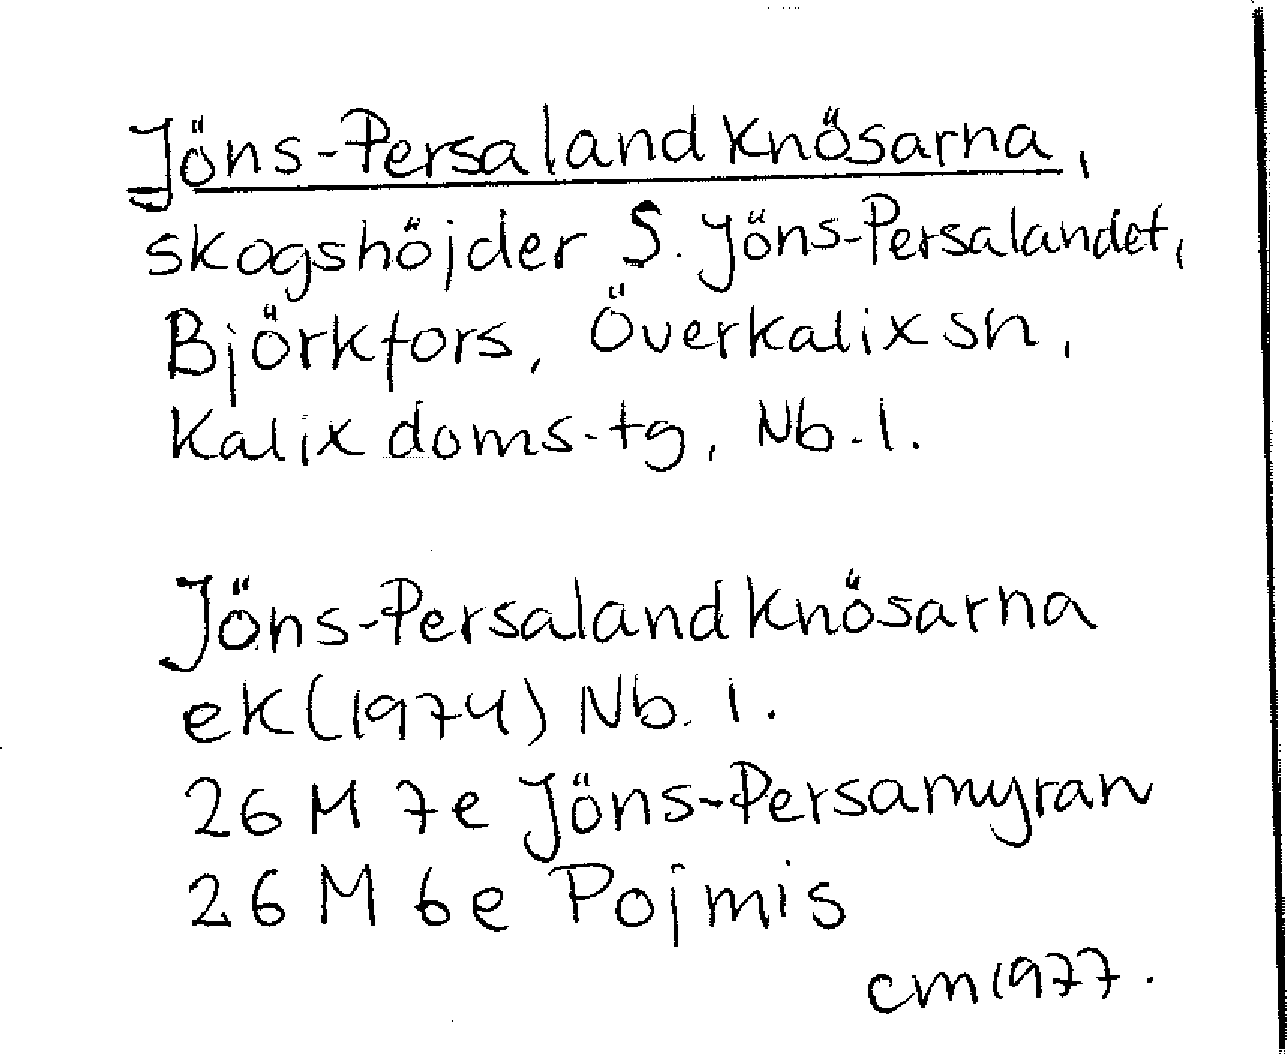 Jöns-Persalandknösarna,
skogshöjder S. Jöns-Persalandet,
Björkfors, Överkalix sn,
Kalix doms.tg, Nb.l.
Jöns-Persalandknösarna
ek(1974) Nb. l.
26 M 7e Jöns-Persamyran
26 M 6e Pojmis
CM 1977.